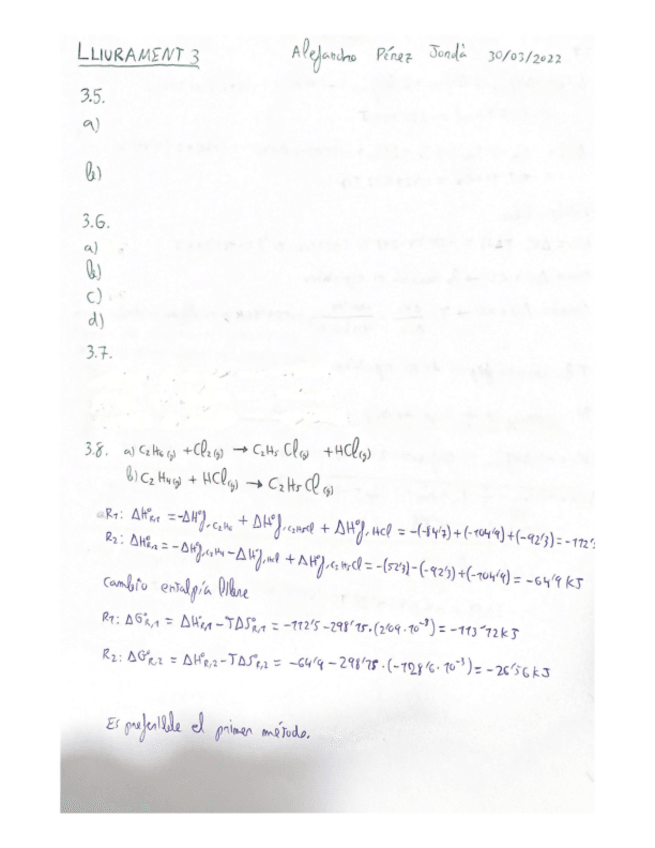 LLIURAMENT 3 Alejandro Pérez Jordà 30/03/2022
3.5.
a)
b)
3.6.
a)
b)
c)
d)
3.7.
3.8. a) C₂H₆(g) + Cl₂(g) → C₂H₅Cl(g) + HCl(g)
b) C₂H₄(g) + HCl(g) → C₂H₅Cl(g)
R₁: ΔH°R,1 = -ΔH°f,C₂H₆ + ΔH°f,C₂H₅Cl + ΔH°f,HCl = -(-84'7)+(-104'9)+(-92'3)=-112'
R₂: ΔH°R,2 = -ΔH°f,C₂H₄ - ΔH°f,HCl + ΔH°f,C₂H₅Cl = -(52'3)-(-92'3)+(-104'9) = -64'9 kJ
Cambio entalpía libre
R₁: ΔG°R,1 = ΔH°R,1 - TΔS°R,1 = -112'5 - 298'15·(2'09·10⁻³) = -113'12 kJ
R₂: ΔG°R,2 = ΔH°R,2 - TΔS°R,2 = -64'9 - 298'15·(-128'6·10⁻³) = -26'56 kJ
Es preferible el primer método.